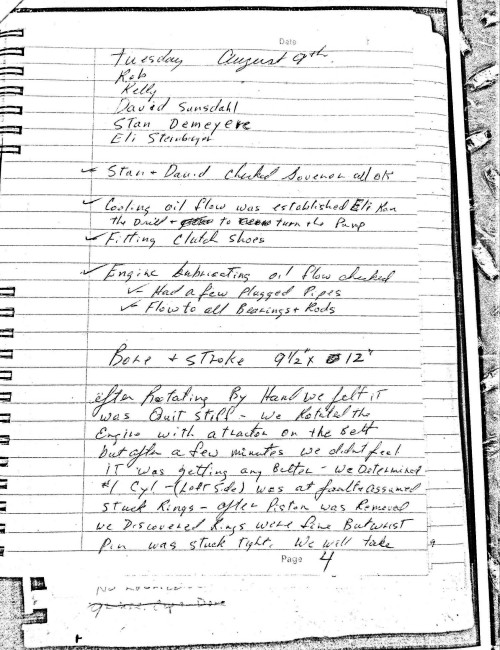 Date
Tuesday August 9th.
Rob
Kelly
David Sunsdahl
Stan Demeyere
Eli
✓ Stan + David checked Govenor all ok
✓ Cooling oil flow was established Eli Ran
the Drill + to turn the Pump
✓ Fitting Clutch Shoes
✓ Engine Lubricating oil flow checked
✓ Had a few Plugged Pipes
✓ Flow to all Bearings + Rods
Bore + Stroke 9 1/2" x 12"
after Rotating By Hand we felt it
was Quit Stiff - we Rotated the
Engine with a tractor on the Belt
but after a few minutes we didnt feel
IT was getting any Better - we Determined
#1 Cyl - (Left Side) was at fault + assumed
Stuck Rings - after Piston was Removed
we Discovered Rings were fine But wrist
Pin was stuck tight. We will take
Page 4
Done